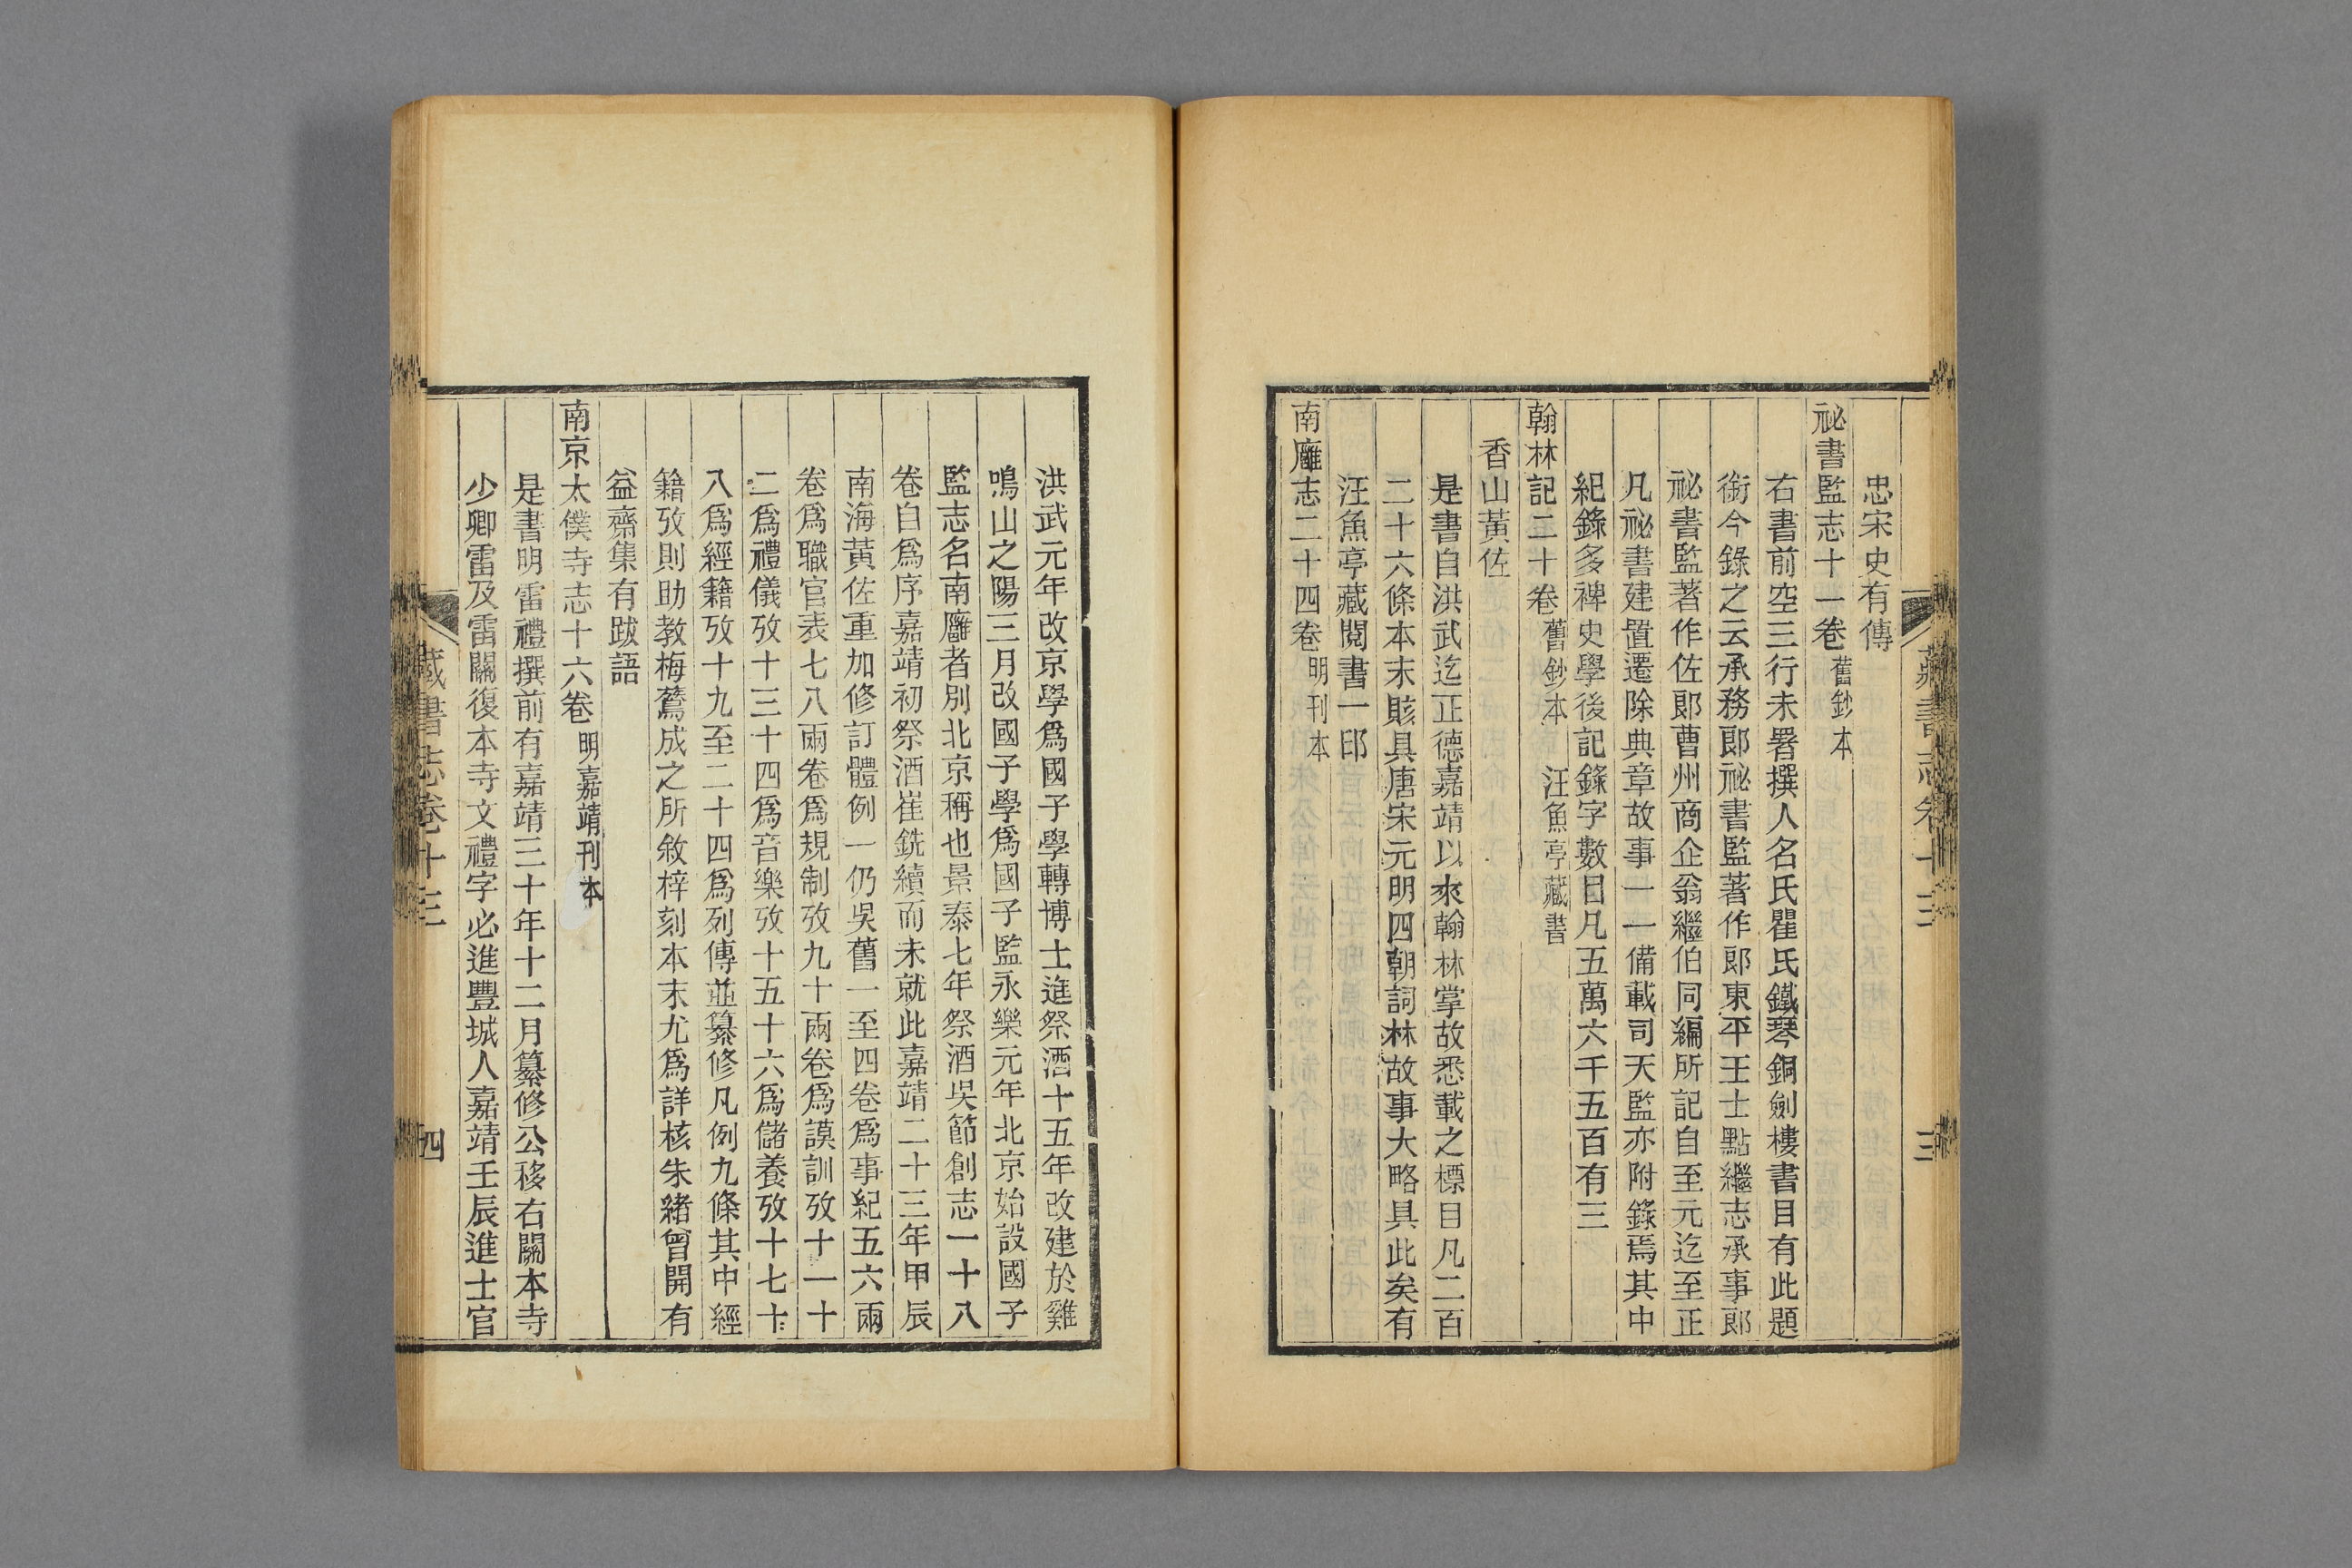 忠宋史有傳
祕書監志十一卷 舊鈔本
右書前空三行未署撰人名氏瞿氏鐵琴銅劍樓書目有此題
銜今錄之云承務郎祕書監著作郎東平王士點繼志承事郎
祕書監著作佐郎曹州商企翁繼伯同編所記自至元迄至正
凡祕書建置遷除典章故事一一備載司天監亦附錄焉其中
紀錄多裨史學後記錄字數目凡五萬六千五百有三
翰林記二十卷 舊鈔本 汪魚亭藏書
香山黃佐
是書自洪武迄正德嘉靖以來翰林掌故悉載之標目凡二百
二十六條本末賅具唐宋元明四朝詞林故事大略具此矣有
汪魚亭藏閱書一印
南廱志二十四卷 明刊本
藏書志卷十三
三
洪武元年改京學爲國子學轉博士進祭酒十五年改建於雞
鳴山之陽三月改國子學爲國子監永樂元年北京始設國子
監志名南廱者別北京稱也景泰七年祭酒吳節創志一十八
卷自爲序嘉靖初祭酒崔銑續而未就此嘉靖二十三年甲辰
南海黃佐重加修訂體例一仍吳舊一至四卷爲事紀五六兩
卷爲職官表七八兩卷爲規制攷九十兩卷爲謨訓攷十一十
二爲禮儀攷十三十四爲音樂攷十五十六爲儲養攷十七十
八爲經籍攷十九至二十四爲列傳並纂修凡例九條其中經
籍攷則助教梅鷟成之所敘梓刻本末尤爲詳核朱緒曾開有
益齋集有跋語
南京太僕寺志十六卷 明嘉靖刊本
是書明雷禮撰前有嘉靖三十年十二月纂修公移右關本寺
少卿雷及雷關復本寺文禮字必進豐城人嘉靖壬辰進士官
藏書志卷十三
四